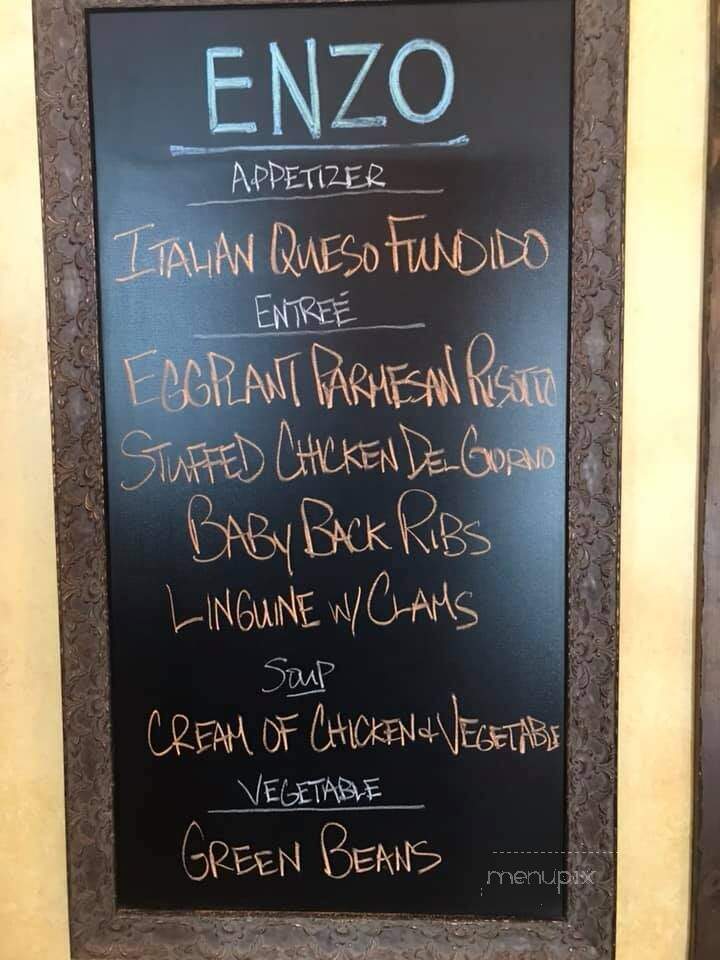 ENZO
APPETIZER
ITALIAN QUESO FUNDIDO
ENTREÉ
EGGPLANT PARMESAN RISOTTO
STUFFED CHICKEN DEL GIORNO
BABY BACK RIBS
LINGUINE W/ CLAMS
SOUP
CREAM OF CHICKEN & VEGETABLE
VEGETABLE
GREEN BEANS
menupix